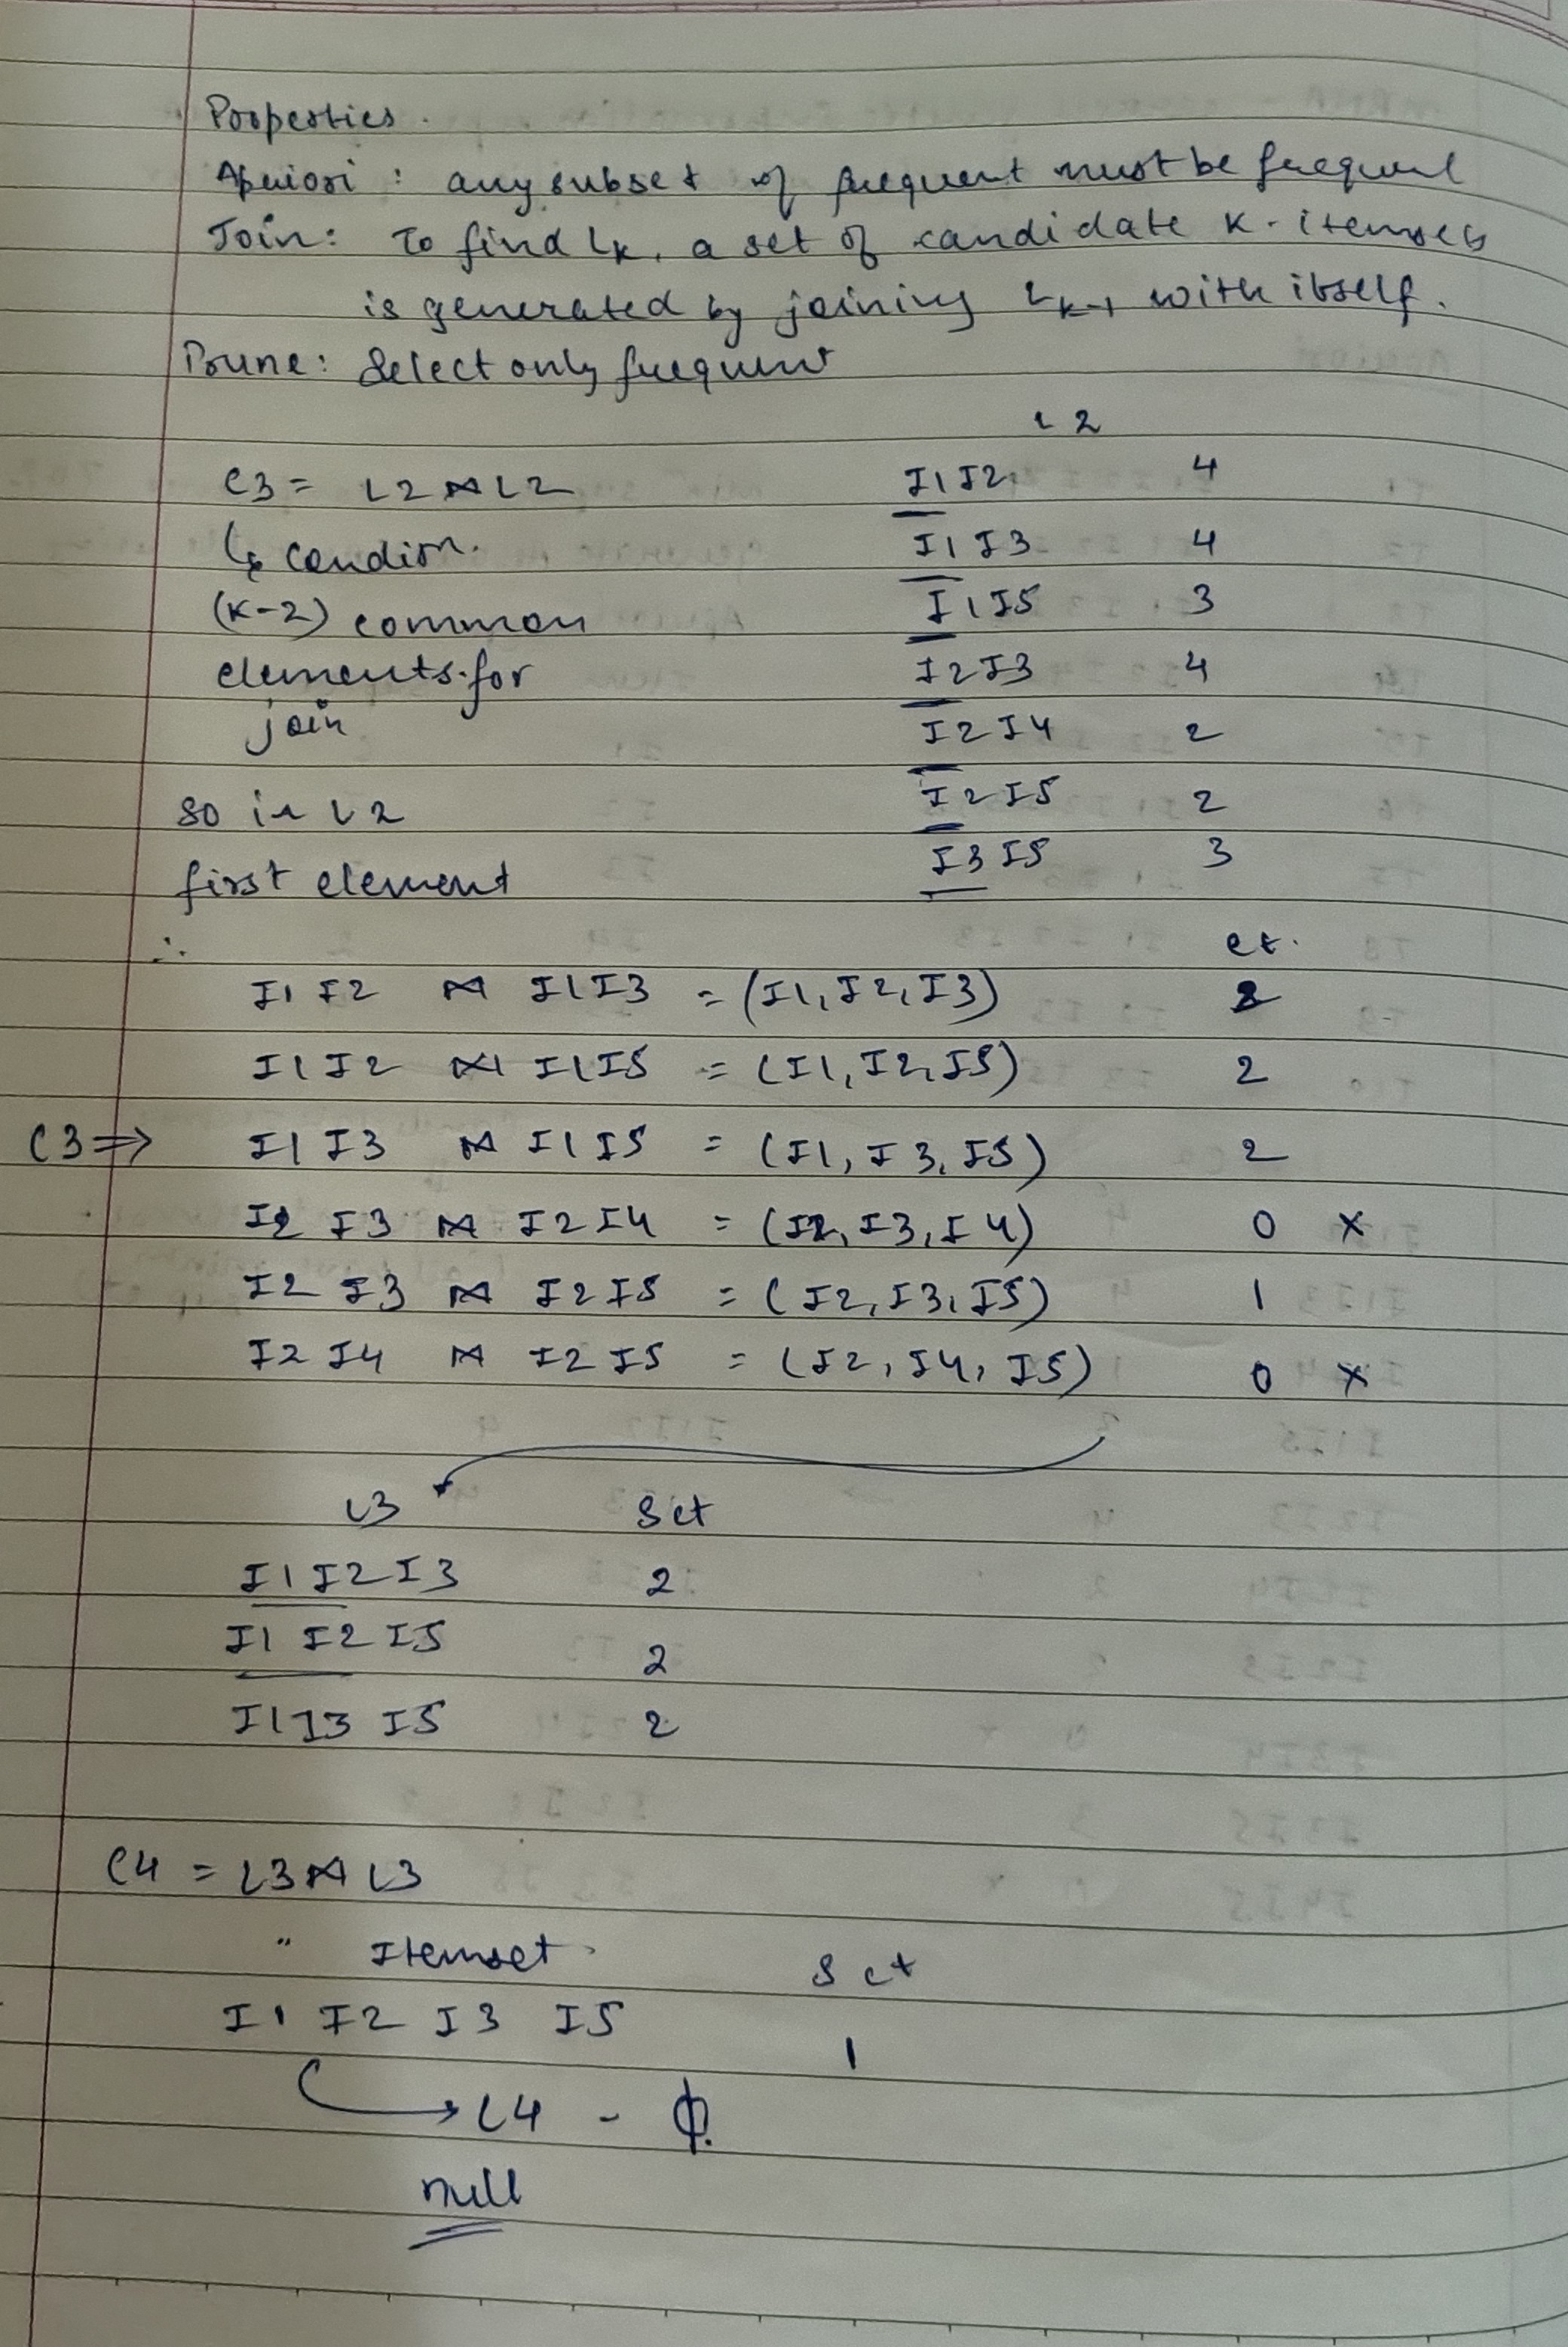 Properties.
Apriori : any subset of frequent must be frequent
Join: To find Lk, a set of candidate K-itemsets
is generated by joining Lk-1 with itself.
Prune: Select only frequent
L2
C3 = L2 ⋈ L2 I1 I2 4
↳ condion. I1 I3 4
(K-2) common I1 I5 3
elements for I2 I3 4
join I2 I4 2
so in L2 I2 I5 2
first element I3 I5 3
∴ ct.
I1 I2 ⋈ I1 I3 = (I1, I2, I3) 2
I1 I2 ⋈ I1 I5 = (I1, I2, I5) 2
C3 ⇒ I1 I3 ⋈ I1 I5 = (I1, I3, I5) 2
I2 I3 ⋈ I2 I4 = (I2, I3, I4) 0 x
I2 I3 ⋈ I2 I5 = (I2, I3, I5) 1
I2 I4 ⋈ I2 I5 = (I2, I4, I5) 0 x
L3 Sct
I1 I2 I3 2
I1 I2 I5 2
I1 I3 I5 2
C4 = L3 ⋈ L3
" Itemset Sct
I1 I2 I3 I5 1
→ L4 - ϕ.
null